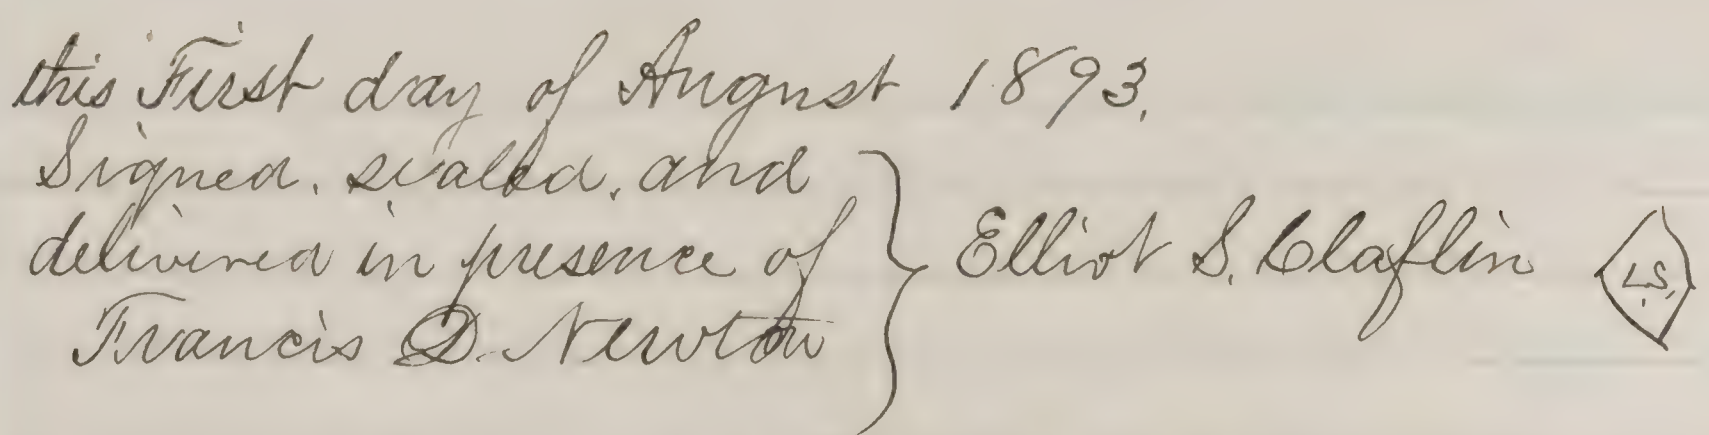 this First day of August 1893.
Signed, sealed, and
delivered in presence of
Francis D. Newton
Elliot S. Claflin
L.S.